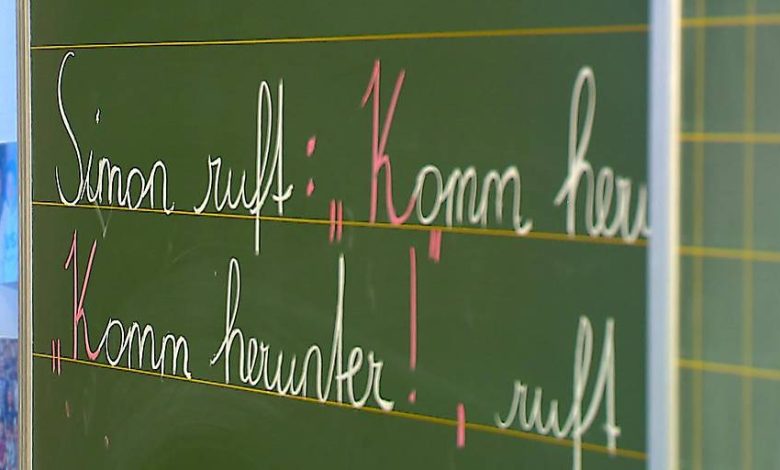 Simon ruft: „Komm heru
„Komm herunter!“, ruft